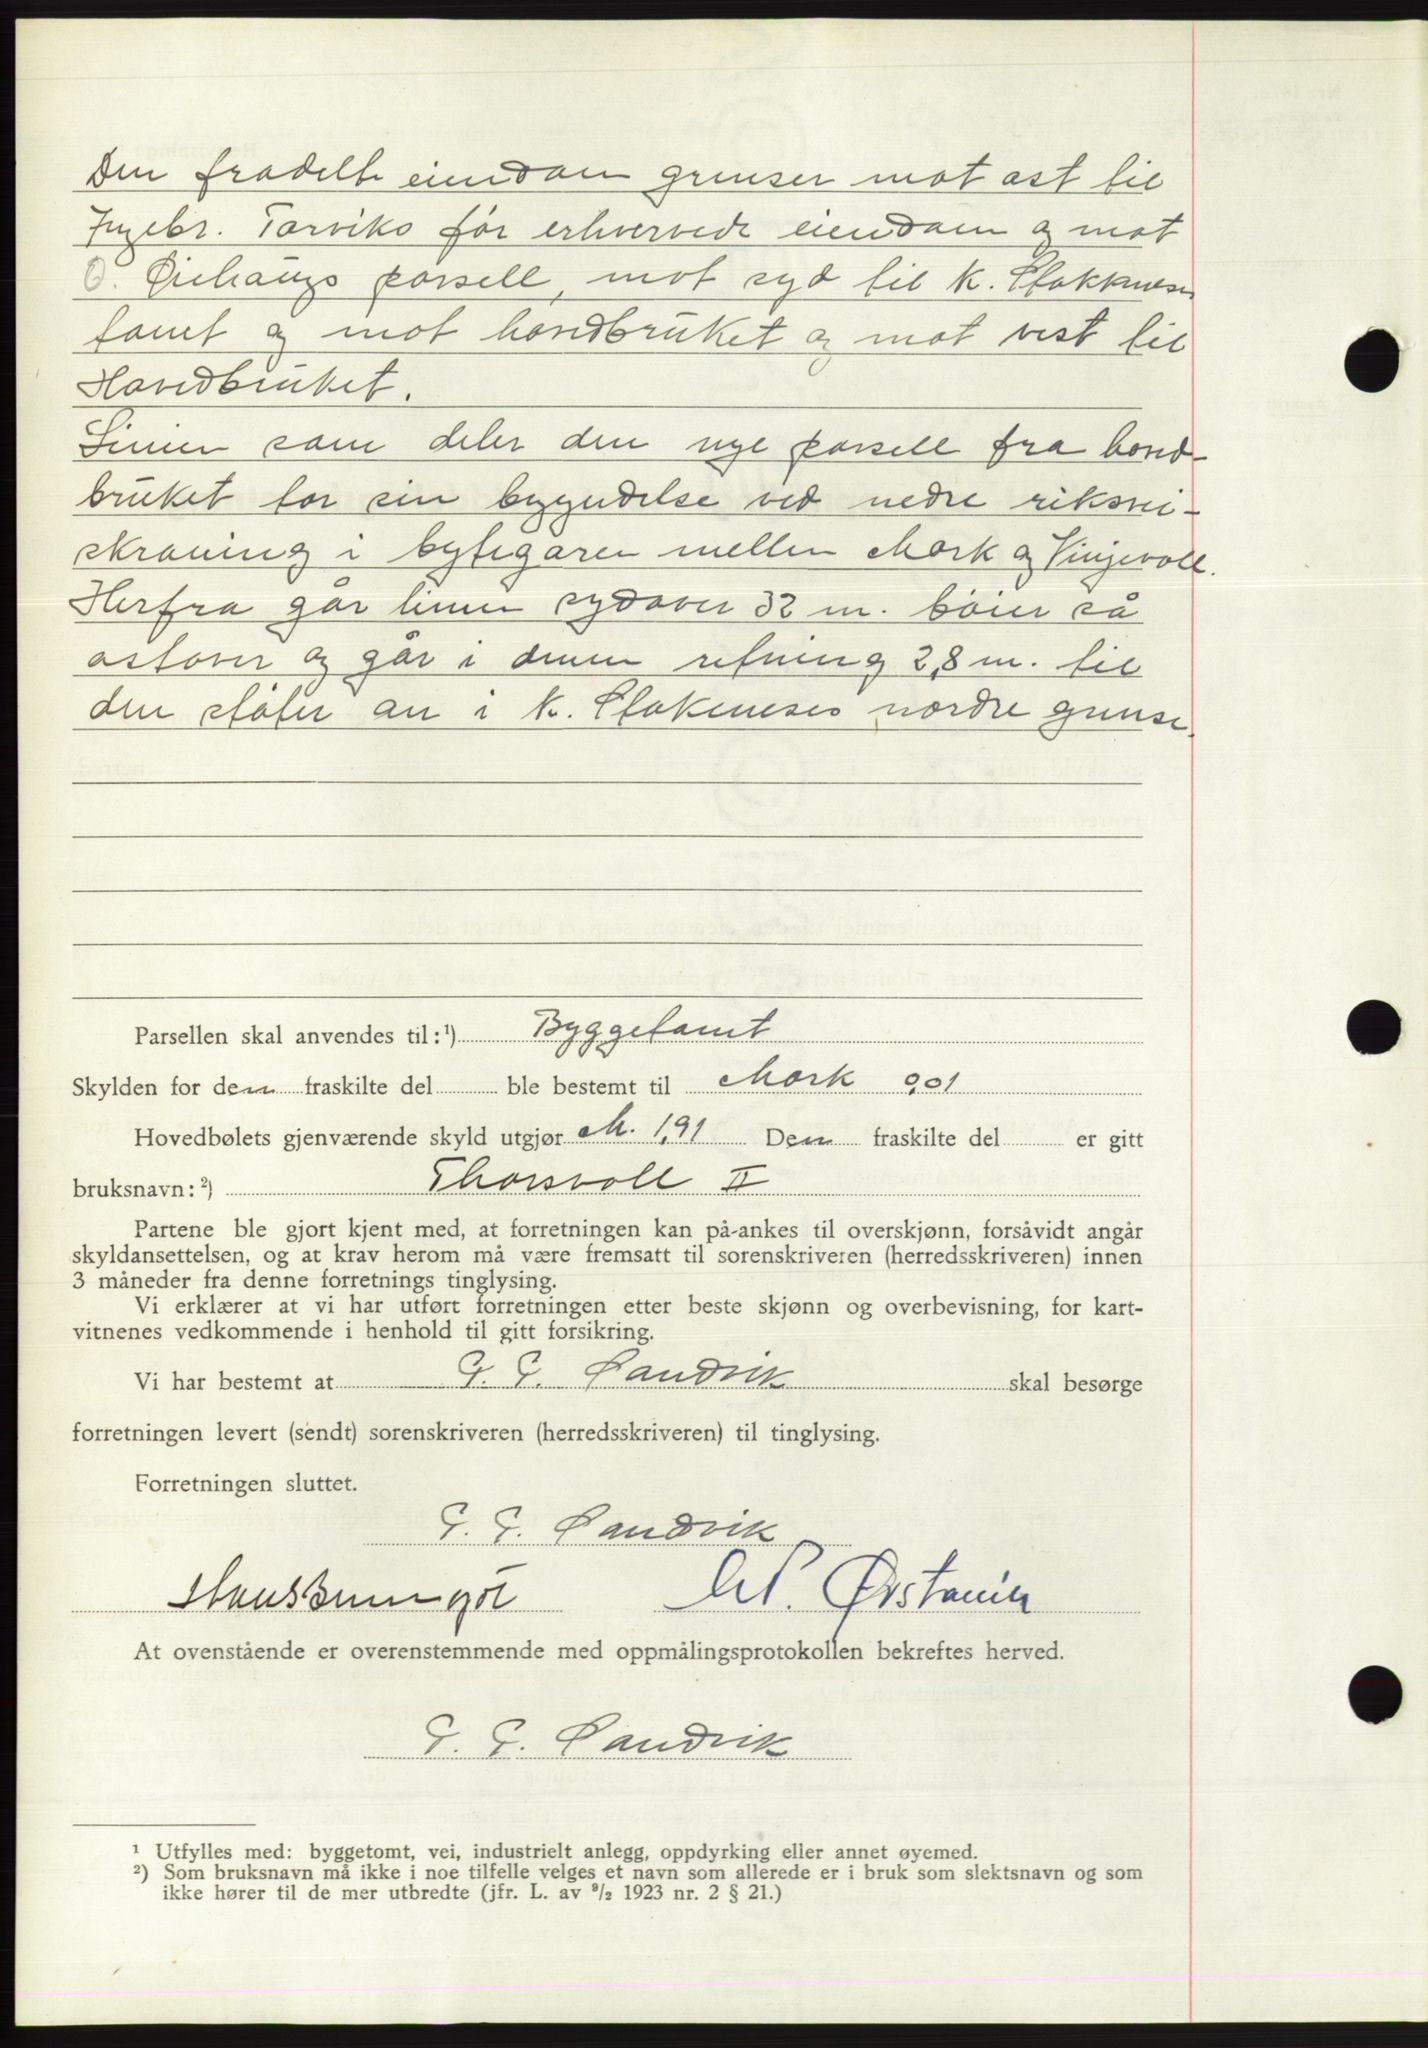 Den fradelte eiendom grenser mot ost til
Ingebr. Torviks før erhvervede eiendom og mot
O. Øiehaugs parsell, mot syd til K. Stokknes
tomt og mot hovedbruket og mot vest til
Hovedbruket.
Linien som deler den nye parsell fra hoved-
bruket tar sin begyndelse ved nedre riksvei-
skraning i bytegaren mellem Mork og Vinjevoll.
Herfra går linien sydover 32 m. bøier så
ostover og går i denne retning 2,8 m. til
den støter an i K. Stokkneses nordre grense.
Parsellen skal anvendes til: ¹) Byggetomt
Skylden for den fraskilte del ble bestemt til Mork 0,01
Hovedbølets gjenværende skyld utgjør M. 1,91 Den fraskilte del er gitt
bruksnavn: ²) Thorsvoll II
Partene ble gjort kjent med, at forretningen kan på-ankes til overskjønn, forsåvidt angår
skyldansettelsen, og at krav herom må være fremsatt til sorenskriveren (herredsskriveren) innen
3 måneder fra denne forretnings tinglysing.
Vi erklærer at vi har utført forretningen etter beste skjønn og overbevisning, for kart-
vitnenes vedkommende i henhold til gitt forsikring.
Vi har bestemt at G. G. Sandvik skal besørge
forretningen levert (sendt) sorenskriveren (herredsskriveren) til tinglysing.
Forretningen sluttet.
G. G. Sandvik
At ovenstående er overenstemmende med oppmålingsprotokollen bekreftes herved.
G. G. Sandvik
¹ Utfylles med: byggetomt, vei, industrielt anlegg, oppdyrking eller annet øyemed.
²) Som bruksnavn må ikke i noe tilfelle velges et navn som allerede er i bruk som slektsnavn og som
ikke hører til de mer utbredte (jfr. L. av ⁹/₂ 1923 nr. 2 § 21.)